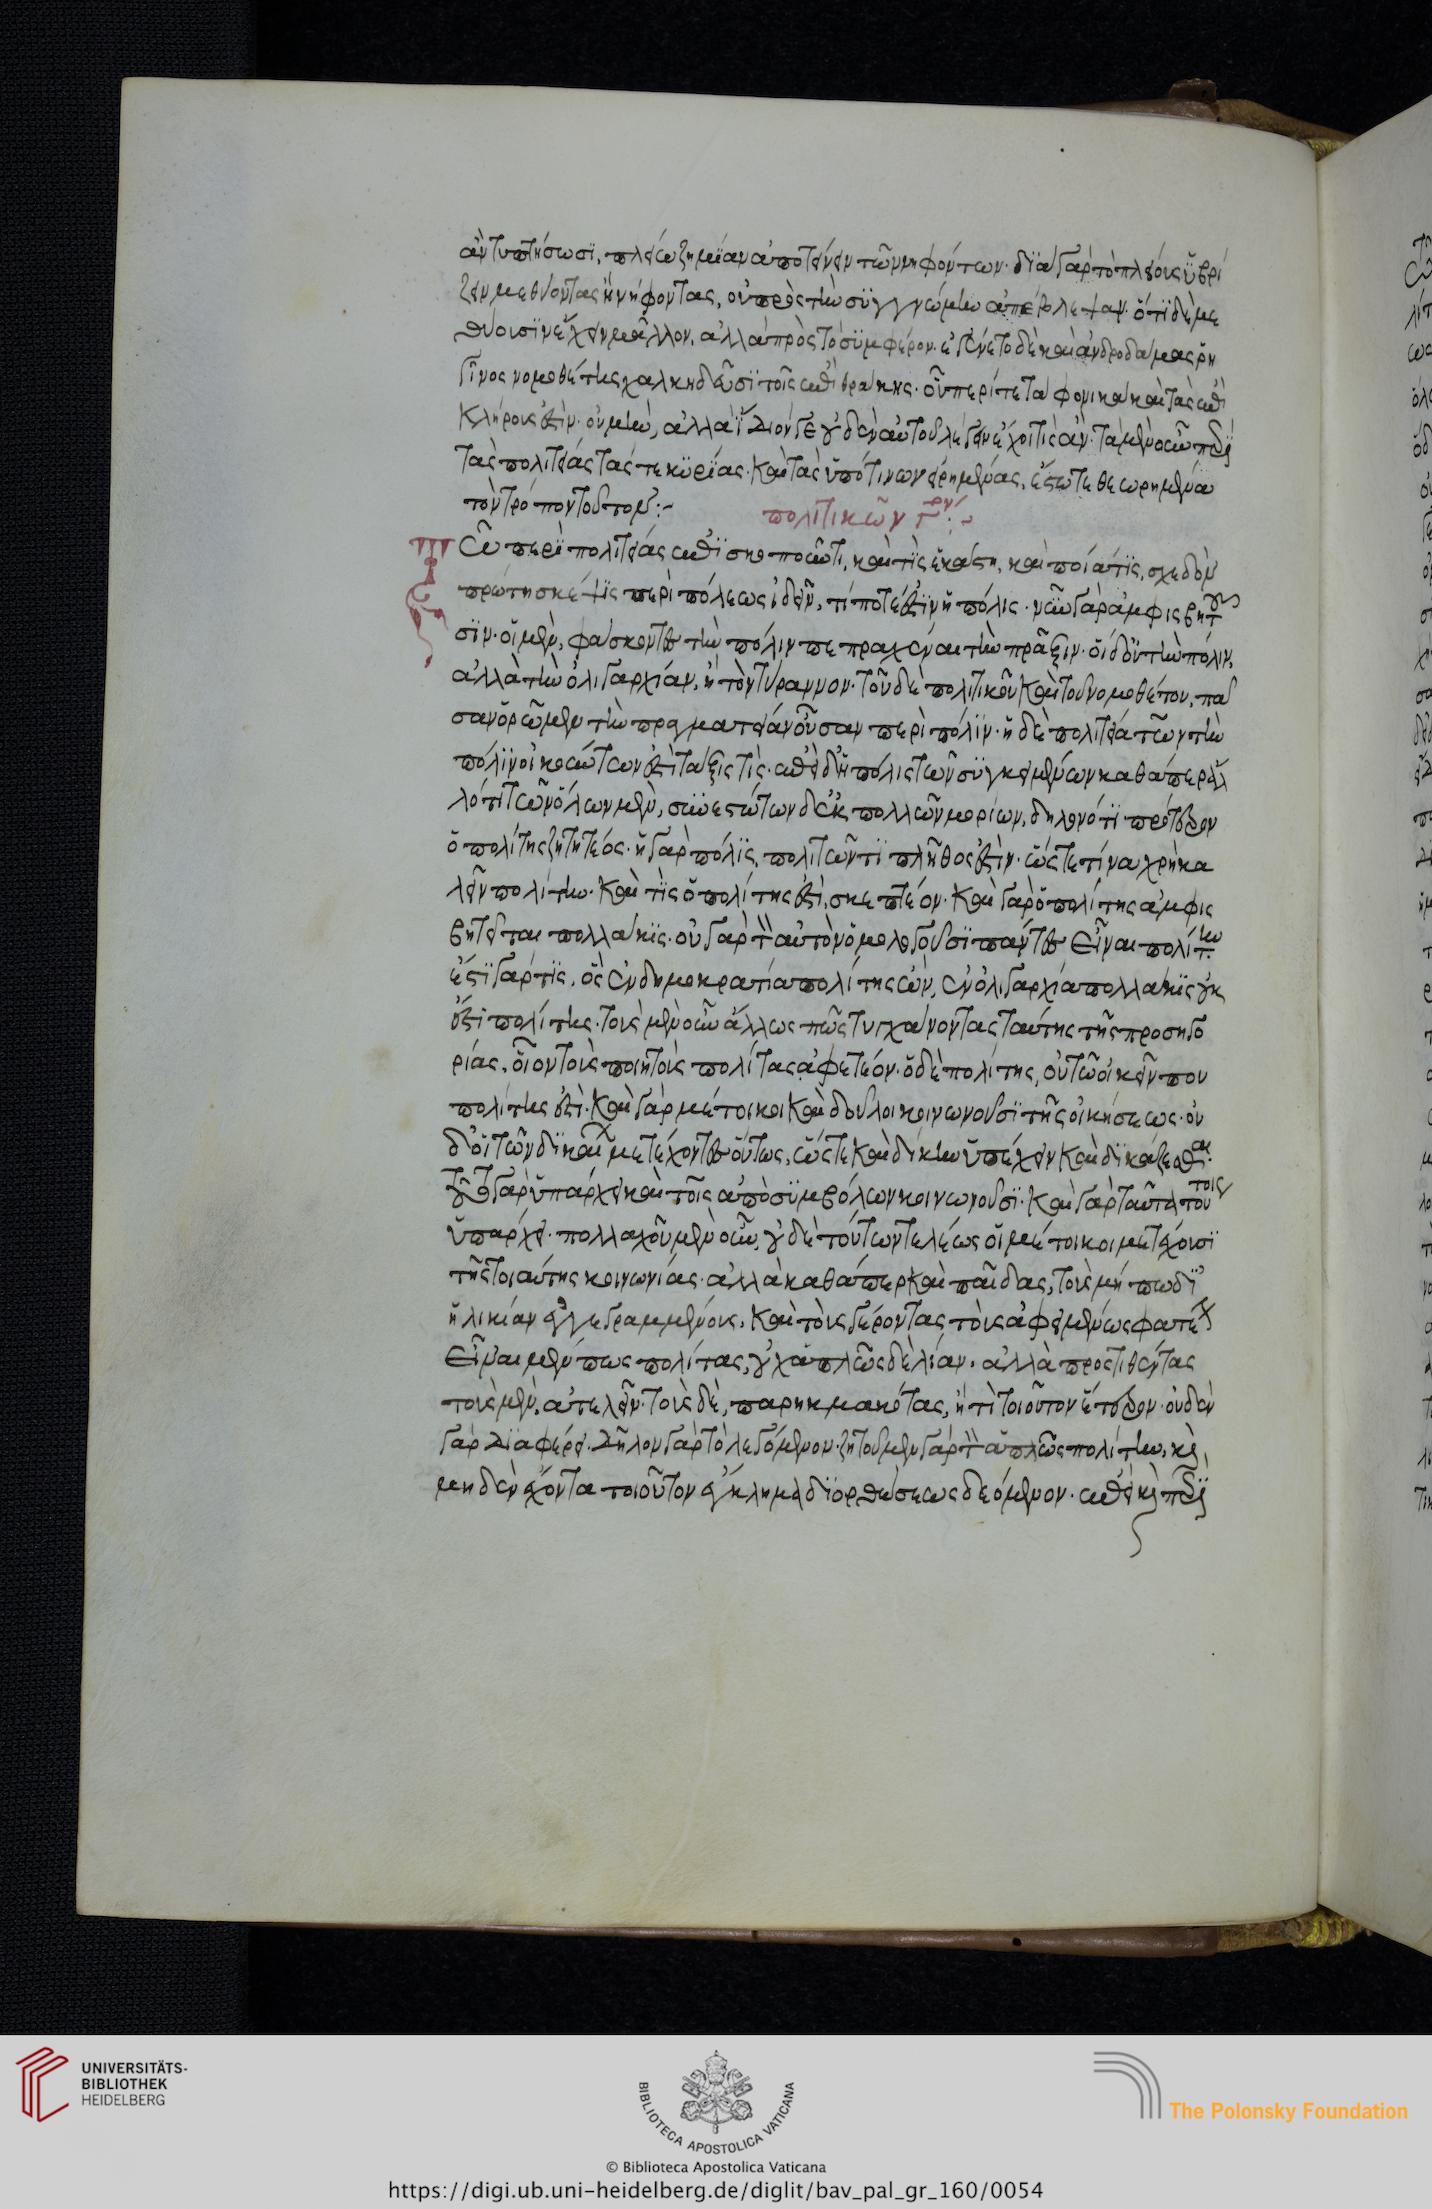 ἂν τυπτήσωσι, πλείω ζημίαν ἀποτείνειν τῶν νηφόντων· διὰ γὰρ τὸ πλείους ὑβρί
ζειν μεθύοντας ἢ νήφοντας, οὐ πρὸς τὴν συγγνώμην ἀπέβλεψαν· ὅτι δεῖ με
θύουσιν ἔχειν μᾶλλον, ἀλλὰ πρὸς τὸ συμφέρον· ἐγένετο δὲ καὶ ἀνδροδάμας ῥη
γῖνος νομοθέτης χαλκιδεῦσι τοῖς ἐπὶ θρᾴκης· οὗ περί τε τὰ φονικὰ καὶ τὰς ἐπι
κλήρους ἐστίν· οὐ μὴν, ἀλλὰ ἴδιόν γε οὐδὲν αὐτοῦ λέγειν ἔχοι τις ἄν· τὰ μὲν οὖν περὶ
τὰς πολιτείας τάς τε κυρίας· καὶ τὰς ὑπό τινων εἰρημένας, ἔστω τεθεωρημένα
τὸν τρόπον τοῦτον:~
πολιτικῶν γ΄:~
Τῶ περὶ πολιτείας ἐπισκοποῦντι, καὶ τίς ἑκάστη, καὶ ποία τίς, σχεδὸν
πρώτη σκέψις περὶ πόλεως ἰδεῖν, τί ποτέ ἐστιν ἡ πόλις· νῦν γὰρ ἀμφισβητοῦ
σιν· οἱ μὲν, φάσκοντες τὴν πόλιν πεπραχέναι τὴν πρᾶξιν· οἱ δ' οὐ τὴν πόλιν,
ἀλλὰ τὴν ὀλιγαρχίαν, ἢ τὸν τύραννον· τοῦ δὲ πολιτικοῦ καὶ τοῦ νομοθέτου, πᾶ
σαν ὁρῶμεν τὴν πραγματείαν οὖσαν περὶ πόλιν· ἡ δὲ πολιτεία τῶν τὴν
πόλιν οἰκούντων ἐστὶ τάξις τίς· ἐπεὶ δ' ἡ πόλις τῶν συγκειμένων καθάπερ ἄλ
λό τι τῶν ὅλων μὲν, συνεστώτων δ' ἐκ πολλῶν μορίων, δῆλον ὅτι πρότερον
ὁ πολίτης ζητητέος· ἡ γὰρ πόλις, πολιτῶν τι πλῆθος ἐστίν· ὥστε τίνα χρὴ κα
λεῖν πολίτην· καὶ τίς ὁ πολίτης ἐστὶ, σκεπτέον· καὶ γὰρ ὁ πολίτης ἀμφισ
βητεῖται πολλάκις· οὐ γὰρ τὸν αὐτὸν ὁμολογοῦσι πάντες εἶναι πολίτην
ἔστι γάρ τις, ὃς ἐν δημοκρατία πολίτης ὢν, ἐν ὀλιγαρχία πολλάκις οὐκ
ἔστι πολίτης· τοὺς μὲν οὖν ἄλλως πως τυγχάνοντας ταύτης τῆς προσηγο
ρίας, οἷον τοὺς ποιητοὺς πολίτας ἀφετέον· ὁ δὲ πολίτης, οὐ τῶ οἰκεῖν που
πολίτης ἐστί· καὶ γὰρ μέτοικοι καὶ δοῦλοι κοινωνοῦσι τῆς οἰκήσεως· οὐ
δ' οἱ τῶν δικαίων μετέχοντες οὕτως, ὥστε καὶ δίκην ὑπέχειν καὶ δικάζεσθαι·
τοῦτο γὰρ ὑπάρχει καὶ τοῖς ἀπὸ συμβόλων κοινωνοῦσι· καὶ γὰρ ταῦτα τούτοις
ὑπάρχει· πολλαχοῦ μὲν οὖν, οὐδὲ τούτων τελέως οἱ μέτοικοι μετέχουσι
τῆς τοιαύτης κοινωνίας· ἀλλὰ καθάπερ καὶ παῖδας, τοὺς μήπω δι'
ἡλικίαν ἐγγεγραμμένους, καὶ τοὺς γέροντας τοὺς ἀφειμένως φατέον
εἶναι μέν πως πολίτας, οὐχ ἁπλῶς δὲ λίαν· ἀλλὰ προστιθέντας
τοὺς μὲν, ἀτελεῖς· τοὺς δὲ, παρηκμακότας, ἤ τι τοιοῦτον ἕτερον· οὐδὲν
γὰρ διαφέρει· δῆλον γὰρ τὸ λεγόμενον· ζητοῦμεν γὰρ τὸν ἁπλῶς πολίτην, καὶ
μηδὲν ἔχοντα τοιοῦτον ἔγκλημα διορθώσεως δεόμενον· ἐπεὶ καὶ περὶ
UNIVERSITÄTS-
BIBLIOTHEK
HEIDELBERG
BIBLIOTECA APOSTOLICA VATICANA
© Biblioteca Apostolica Vaticana
The Polonsky Foundation
https://digi.ub.uni-heidelberg.de/diglit/bav_pal_gr_160/0054